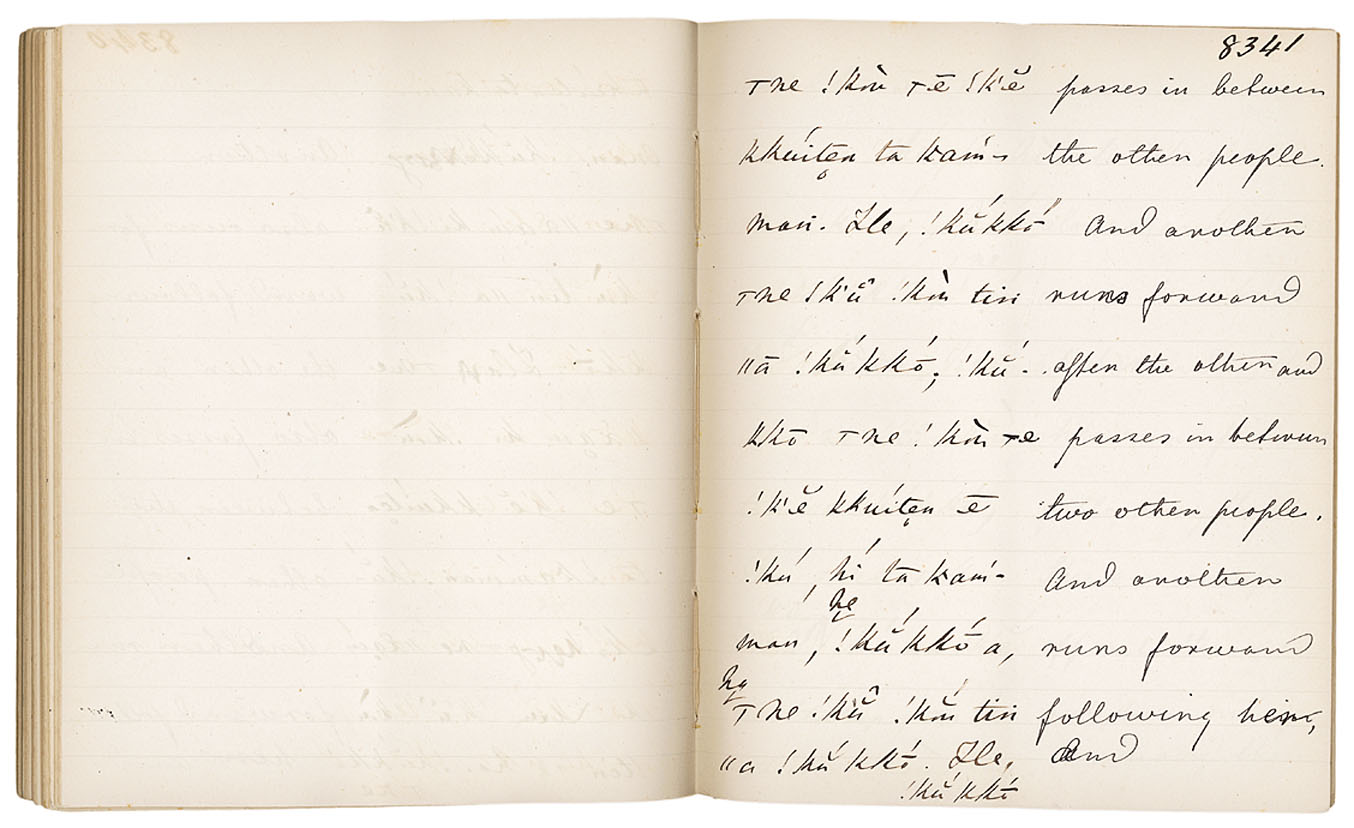 8341
⊤ne !kòù ⊤ē !k'ĕ passes in between
kkúïtẹn ta kam- the other people.
man. Hé, !kŭ́kkō And another
⊤ne !kŭ !kòù tïn runs forward
ǁā !kŭ́kkō; !kŭ́- after the other and
kkō ⊤ne !kòù ⊤ē passes in between
!k'ĕ kkúïtẹn ē two other people.
!kú, hí ta kam- And another
man, he !kŭ́kkō a, runs forward
ha ⊤ne !kŭ !kòù tïn following him,
ǁa !kŭ́kkō. Hé, And
!kŭ́kkō